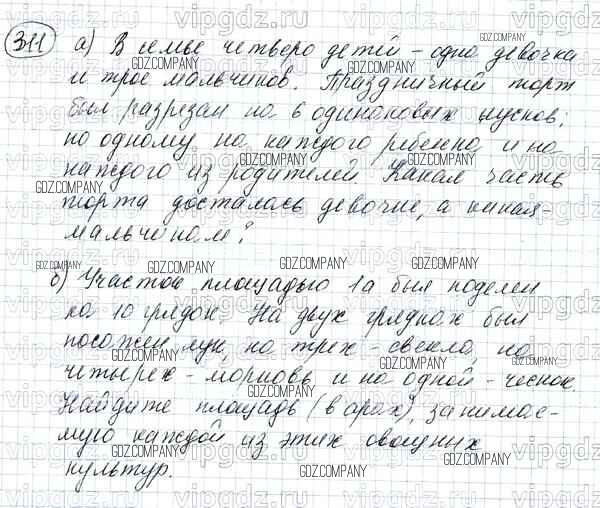 311 а) В семье четверо детей – одна девочка
и трое мальчиков. Праздничный торт
был разрезан на 6 одинаковых кусков:
по одному на каждого ребенка и на
каждого из родителей. Какая часть
торта досталась девочке, а какая –
мальчикам?
б) Участок площадью 1а был поделен
на 10 грядок. На двух грядках был
посажен лук, на трех – свекла, на
четырех – морковь и на одной – чеснок.
Найдите площадь (в арах), занимае-
мую каждой из этих овощных
культур.